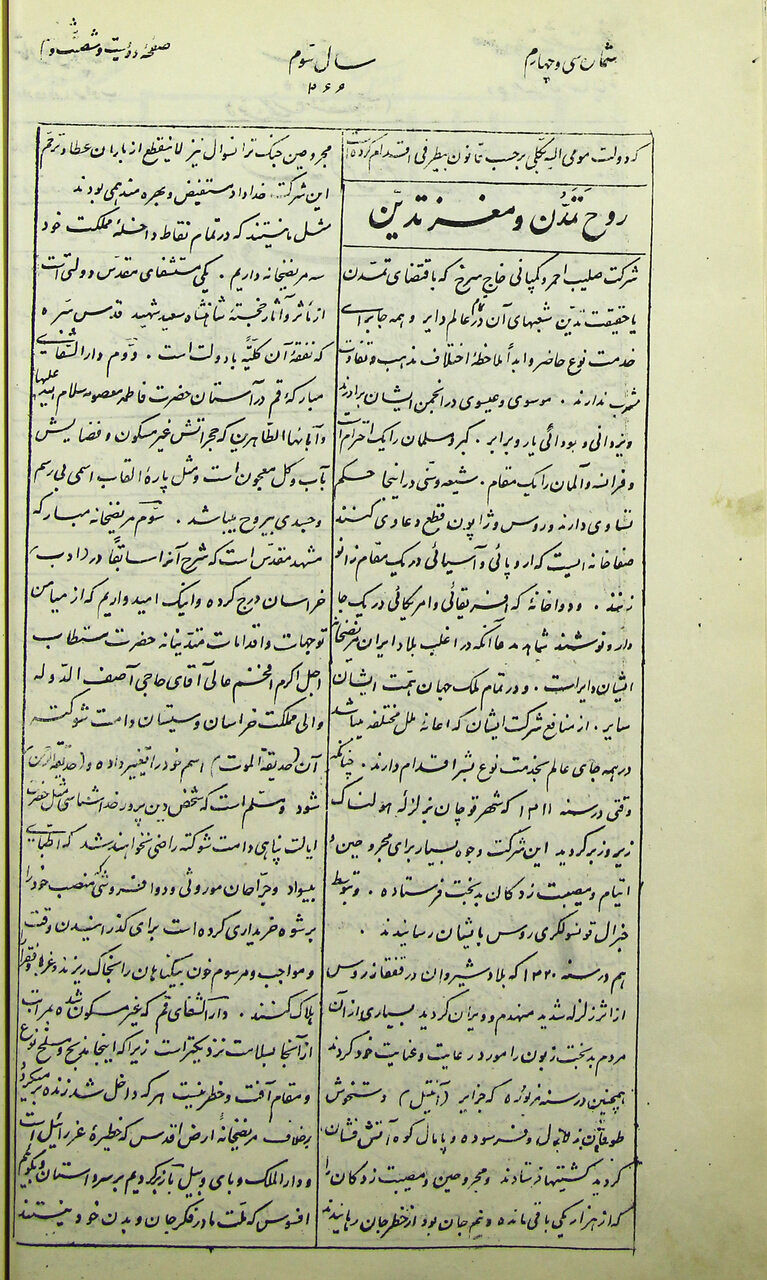 شماره سی و چهارم
سال سوم
۲۶۶
صفحه دویست و شصت و
که دولت مومی الیه بکلی برحسب قانون بیطرفی اقدام کرده است
روح تمدن و مغز تدین
شرکت صلیب احمر و کمپانی خاج سرخ که باقتضای تمدن
یا حقیقت تدین شعبهای آن در تمام عالم دایر و همه جا برای
خدمت نوع حاضر و ابداً ملاحظهٔ اختلاف مذهب و تفاوت
مشرب ندارند . موسوی و عیسوی در انجمن ایشان برادرند
و یزدانی و بودائی یار و برابر . گبر و مسلمان را یک احترام است
و فرانسه و آلمان را یک مقام . شیعه و سنی در اینجا حکم
تساوی دارند و روس و ژاپون قطع دعاوی کنند
شفاخانه ایست که اروپائی و آسیائی در یک مقام زانو
زنند . و دواخانه که افریقائی و امریکائی در یک جا
دارو نوشند شاهد مدعا آنکه در اغلب بلاد ایران مریضخانه
ایشان دایر است . و در تمام ملک جهان همت ایشان
سایر . از منافع شرکت ایشان که اعانه ملل مختلفه میباشد
در همه جای عالم بخدمت نوع بشر اقدام دارند . چنانکه
وقتی در سنه ۱۳۱۱ که شهر قوچان بزلزله هولناک
زیر و زبر گردید این شرکت وجوه بسیار برای مجروحین و
ایتام و مصیبت زدگان بدبخت فرستاده . و بتوسط
جنرال قونسولگری روس بایشان رسانیدند .
هم در سنه ۱۳۲۰ که بلاد شیروان در قفقاز روس
از اثر زلزله شدید منهدم و ویران گردید بسیاری از آن
مردم بدبخت زبون را مورد رعایت و عنایت خود کردند
همچنین در سنه مزبوره که جزایر (آنتیل) دستخوش
طوفان و فرسوده و پایمال کوه آتش فشان
گردید کشتیها فرستادند و مجروحین و مصیبت زدگان را
که از هزار یکی باقی مانده و نیم جان بود از خطر جان رهانیدند
مجروحین جنگ ترانسوال نیز لاینقطع از باران عطا و ترحم
این شرکت خداداد مستفیض و بهره مند همی بودند
مثل ما نیستند که در تمام نقاط داخلهٔ مملکت خود
سه مریضخانه داریم . یکی مستشفای مقدس دولتی است
از مآثر و آثار خجستهٔ شاهنشاه سعید شهید قدس سره
که نفقه آن کلیةً با دولت است . دوم دارالشفای
مبارکهٔ قم در آستان حضرت فاطمه معصومه سلام الله علیها
و آبائها الطاهرین که حجراتش غیر مسکون و فضایش
بآب و گل معجون است و مثل پارهٔ القاب اسمی بی رسم
و جسدی بیروح میباشد . سوم مریضخانه مبارکه
مشهد مقدس است که شرح آنرا سابقاً در (ادب)
خراسان درج کرده و اینک امیدواریم که از میامن
توجهات و اقدامات متدینانه حضرت مستطاب
اجل اکرم افخم عالی آقای حاجی آصف الدوله
والی مملکت خراسان و سیستان دامت شوکته
آن (حدیقة الموت) اسم خود را تغییر داده و
شود و مسلم است که شخص دین پرور خداشناسی مثل حضرت
ایالت پناهی دامت شوکته راضی نخواهند شد که اطبای
بیسواد و جراحان موروثی و دوا فروشی که منصب خود را
برشوه خریداری کرده است برای گذرانیدن وقت
و مواجب و مرسوم خون بیگناهان را بخاک ریزند و غربا و فقرا
هلاک کنند . دارالشفای قم که غیر مسکون شده بمراتب
از آنجا بسلامت نزدیکتر است زیرا که اینجا مذبح و مسلخ نوع
و مقام آفت و خطر نیست هر که داخل شد زنده بر میگردد
بر خلاف مریضخانهٔ ارض اقدس که حظیرهٔ عزرائیل است
و دار الملک وبای و بیل باز گردیم بر سر داستان و بگوئیم
افسوس که ملت ما در فکر جان و بدن خود نیستند